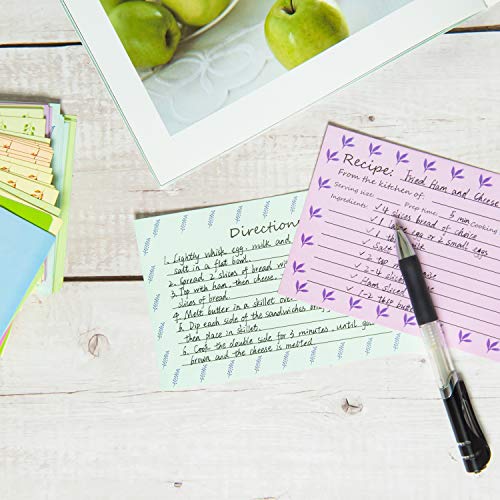 Recipe: Fried Ham and Cheese
From the kitchen of
Serving size: Prep time: 5 min Cooking
Ingredients: ✓ 4 slices bread of choice
✓ 1 large egg or 2 small eggs
✓ 1
✓ Salt
✓ 2 to
✓ 2-4 slices
✓ Ham sliced
✓ 1-2 tbsp butter
Direction
1. Lightly whisk egg, milk and
salt in a flat bowl.
2. Spread 2 slices of bread wi
3. Top with ham, then cheese,
slices of bread.
4. Melt butter in a skillet over
5. Dip each side of the sandwiches
then place in skillet.
6. Cook the double side for 3 minutes, until go
brown and the cheese is melted